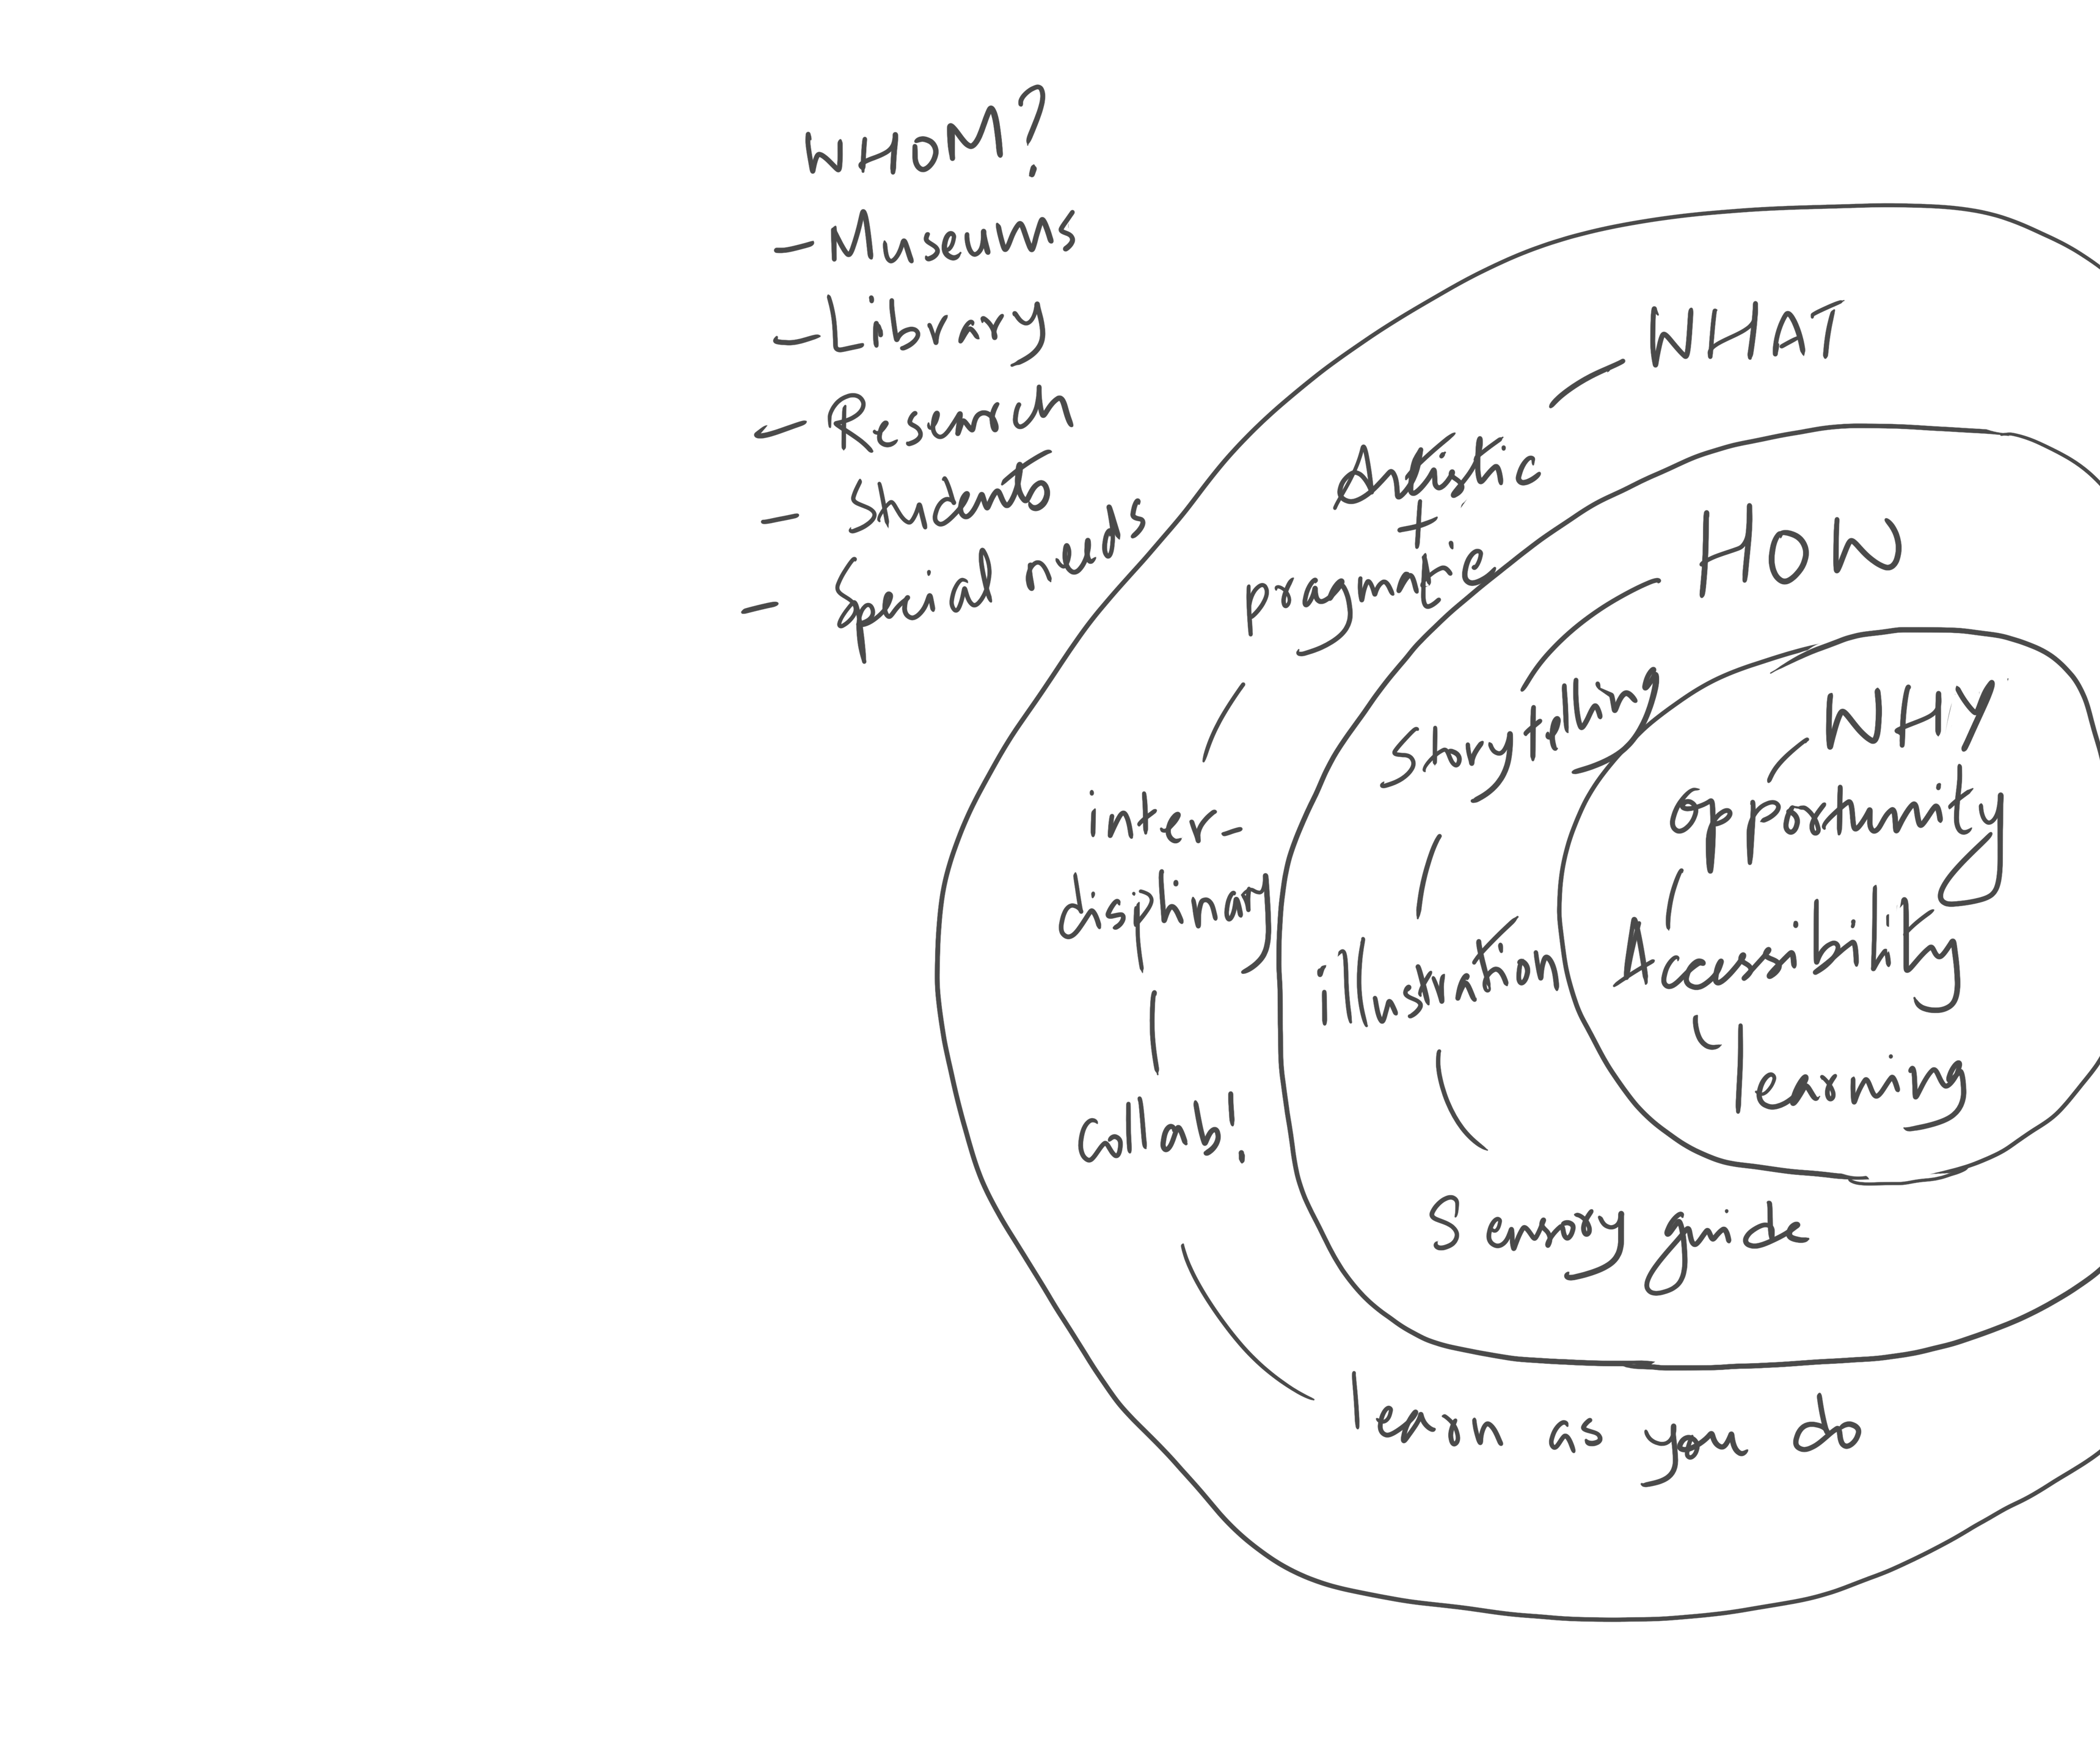 WHOM?
- Museums
- Library
- Research
- Students
- Special needs
WHAT
Artistic
+
pragmatic
inter-
displinary
collab!
learn as you do
HOW
Storytelling
illustration
Sensory guide
WHY
opportunity
Accessibility
learning